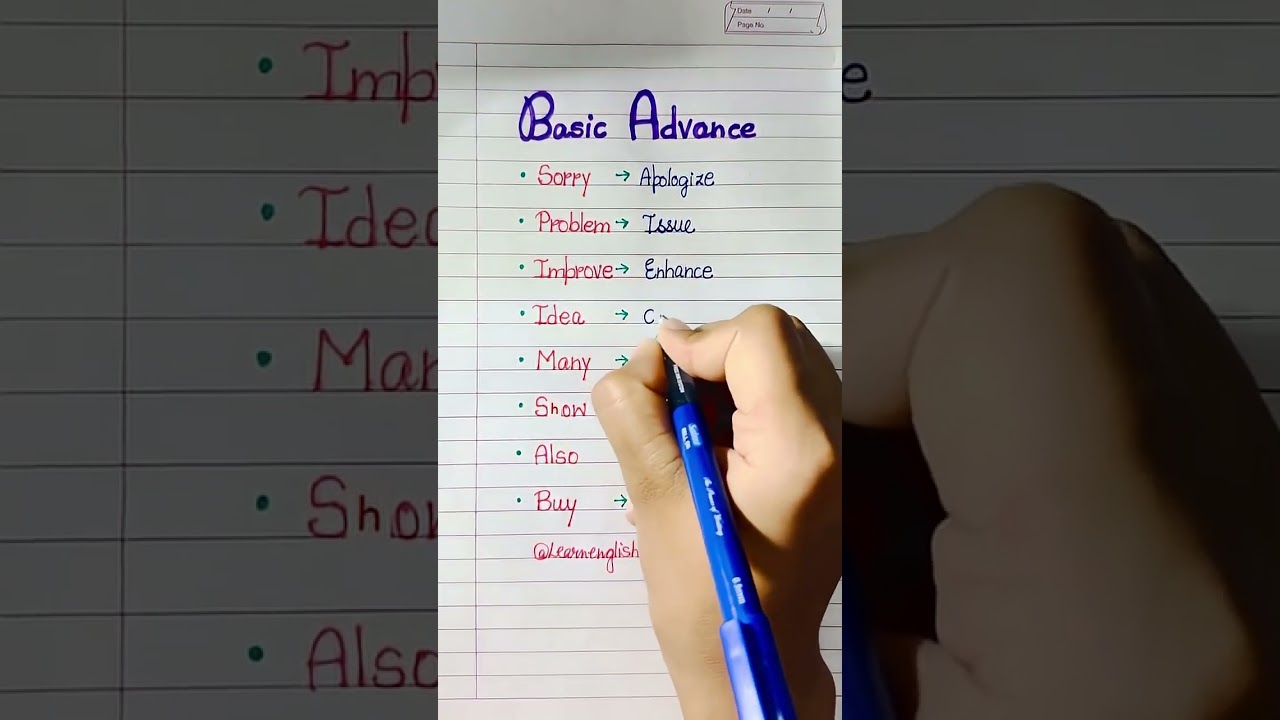 Date / /
Page No.
Basic Advance
• Sorry → Apologize
• Problem → Issue
• Improve → Enhance
• Idea → C
• Many →
• Show
• Also
• Buy →
@Learnenglish
0.6mm